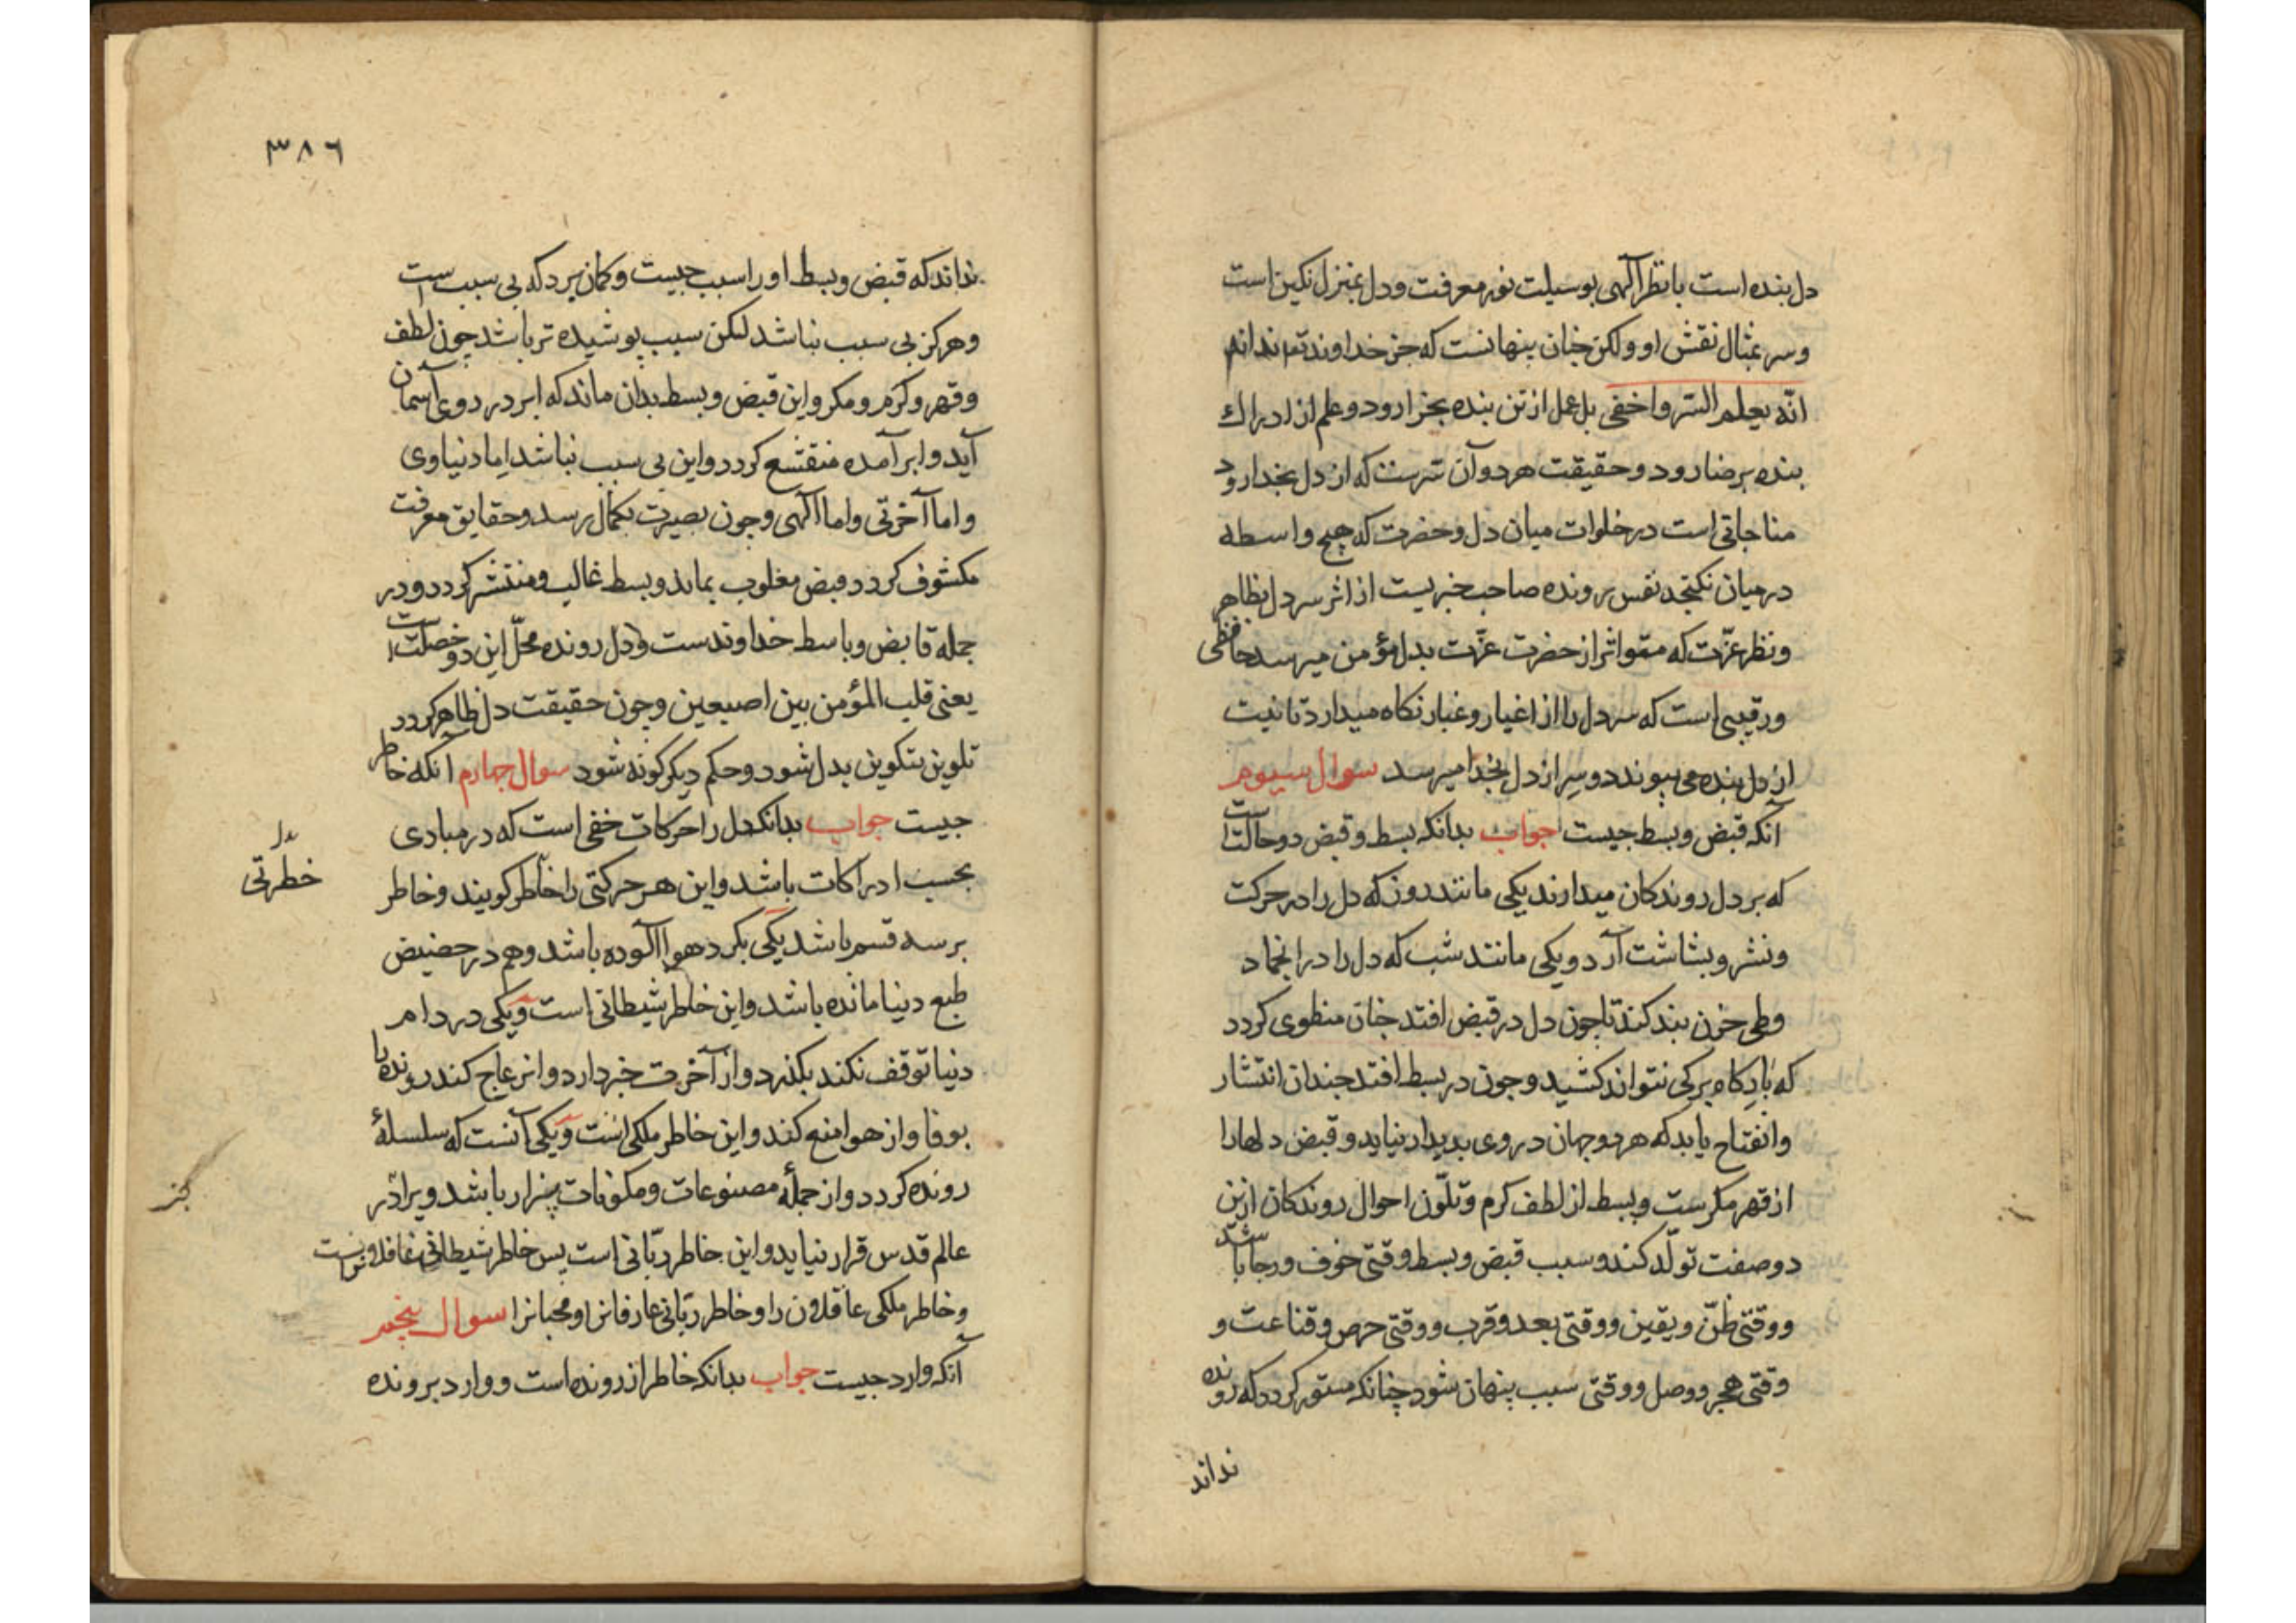 دل بنده است با نظر آلهی بوسیلت نور معرفت و دل بمنزل نکین است
و سر بمثال نقش او ولکن جنان پنهانست که جز خداوند تع نداند
انّه یعلم السّر واخفی بل عمل از تن بنده بجزا رود و علم از ادراك
بنده برضا رود و حقیقت هر دو آن سّرست که از دل بخدا رود
مناجاتی است در خلوات میان دل و حضرت که هیچ واسطه
در میان نکنجد نفس رونده صاحب خبریست از اثر سر دل بظاهر
و نظر عزّت که متواتر از حضرت عزّت بدل مؤمن میرسد حافظی
و رقیبی است که سر دل را از اغیار و غبار نکاه میدارد تا نیت
از دل بنده می پیوندد و سِر از دل بخدا میرسد سوال سیوم
آنکه قبض و بسط جیست جواب بدانکه بسط و قبض دو حالتست
که بر دل روندکان میدارند یکی مانند روز که دل را در حرکت
و نشر و بشاشت آرد و یکی مانند شب که دل را در انجماد
و طی حزن بند کند تا جون دل در قبض افتد جنان منطوی کردد
که بار کاه برکی نتواند کشید و جون در بسط افتد جندان انتشار
و انفتاح یابد که هر دو جهان در وی بدیدار نیاید و قبض دلها را
از قهر مکرست و بسط از لطف کرم و تلّون احوال روندکان ازین
دو صفت تولّد کند و سبب قبض و بسط وقتی خوف و رجا باشد
و وقتی ظنّ و یقین و وقتی بعد و قرب و وقتی حرص و قناعت و
وقتی هجر و وصل و وقتی سبب پنهان شود چنانکه مستور کردد که رونده
نداند
۳۸۶
نداند که قبض و بسط او را سبب جیست و کمان برد که بی سبب است
و هرکز بی سبب نباشد لکن سبب پوشیده تر باشد چون لطف
و قهر و کرم و مکر و این قبض و بسط بدان ماند که ابر در روی آسمان
آید و ابر آمده منقشع کردد و این بی سبب نباشد اما دنیاوی
و اما آخرتی و اما آلهی و جون بصیرت بکمال رسد و حقایق معرفت
مکشوف کردد قبض مغلوب بماند و بسط غالب و منتشر کردد و در
جمله قابض و باسط خداوندست و دل رونده محلّ این دو خصلت است
یعنی قلب المؤمن بین اصبعین و چون حقیقت دل ظاهر کردد
تلوین بتکوین بدل شود و حکم دیکر کونه شود سوال چهارم آنکه خاطر
جیست جواب بدانکه دل را حرکات خفی است که در مبادی
بحسب ادراکات باشد و این هر حرکتی را خاطر کویند و خاطر
بدل
خطرتی
بر سه قسم باشد یکی بکرد هوا آلوده باشد و هم در حضیض
طبع دنیا مانده باشد و این خاطر شیطانی است و یکی در دام
دنیا توقف نکند بکذرد و از آخرت خبر دارد و ازعاج کند رونده را
بوفا و از هوا منع کند و این خاطر ملکی است و یکی آنست که سلسلهٔ
رونده کردد و از جملهٔ مصنوعات و مکونات بیزار باشد ویرا در
عالم قدس قرار نیاید و این خاطر ربّانی است پس خاطر شیطانی غافلانراست
و خاطر ملکی عاقلان را و خاطر ربّانی عارفانرا و محبانرا سوال پنجم
آنکه وارد جیست جواب بدانکه خاطر از رونده است و وارد برونده